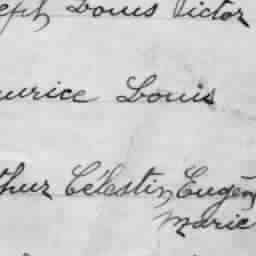 eph Louis Victor
urice Louis
thur Célestin Eugèn
Marie